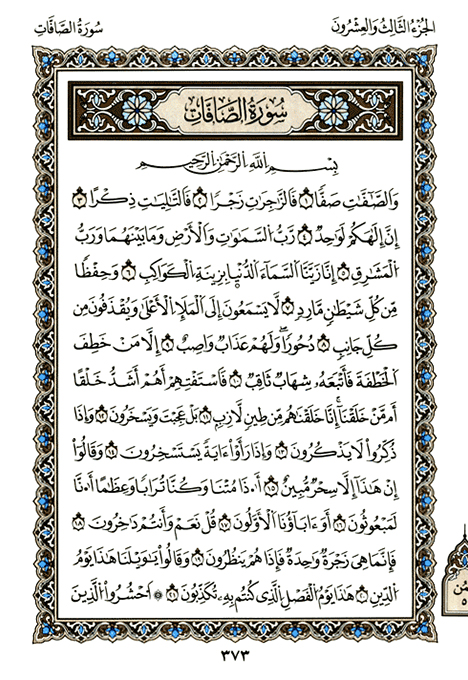 الجزء الثالث والعشرون
سورة الصافات
سُورَةُ الصَّافَّاتِ
بِسْمِ اللَّهِ الرَّحْمَٰنِ الرَّحِيمِ
وَالصَّافَّاتِ صَفًّا ١ فَالزَّاجِرَاتِ زَجْرًا ٢ فَالتَّالِيَاتِ ذِكْرًا ٣
إِنَّ إِلَٰهَكُمْ لَوَاحِدٌ ٤ رَبُّ السَّمَاوَاتِ وَالْأَرْضِ وَمَا بَيْنَهُمَا وَرَبُّ
الْمَشَارِقِ ٥ إِنَّا زَيَّنَّا السَّمَاءَ الدُّنْيَا بِزِينَةٍ الْكَوَاكِبِ ٦ وَحِفْظًا
مِّن كُلِّ شَيْطَانٍ مَّارِدٍ ٧ لَّا يَسَّمَّعُونَ إِلَى الْمَلَإِ الْأَعْلَىٰ وَيُقْذَفُونَ مِن
كُلِّ جَانِبٍ ٨ دُحُورًا ۖ وَلَهُمْ عَذَابٌ وَاصِبٌ ٩ إِلَّا مَنْ خَطِفَ
الْخَطْفَةَ فَأَتْبَعَهُ شِهَابٌ ثَاقِبٌ ١٠ فَاسْتَفْتِهِمْ أَهُمْ أَشَدُّ خَلْقًا
أَم مَّنْ خَلَقْنَا ۚ إِنَّا خَلَقْنَاهُم مِّن طِينٍ لَّازِبٍ ١١ بَلْ عَجِبْتَ وَيَسْخَرُونَ ١٢ وَإِذَا
ذُكِّرُوا لَا يَذْكُرُونَ ١٣ وَإِذَا رَأَوْا آيَةً يَسْتَسْخِرُونَ ١٤ وَقَالُوا
إِنْ هَٰذَا إِلَّا سِحْرٌ مُّبِينٌ ١٥ أَإِذَا مِتْنَا وَكُنَّا تُرَابًا وَعِظَامًا أَإِنَّا
لَمَبْعُوثُونَ ١٦ أَوَآبَاؤُنَا الْأَوَّلُونَ ١٧ قُلْ نَعَمْ وَأَنتُمْ دَاخِرُونَ ١٨
فَإِنَّمَا هِيَ زَجْرَةٌ وَاحِدَةٌ فَإِذَا هُمْ يَنظُرُونَ ١٩ وَقَالُوا يَا وَيْلَنَا هَٰذَا يَوْمُ
الدِّينِ ٢٠ هَٰذَا يَوْمُ الْفَصْلِ الَّذِي كُنتُم بِهِ تُكَذِّبُونَ ٢١ ۞ احْشُرُوا الَّذِينَ
٣٧٣